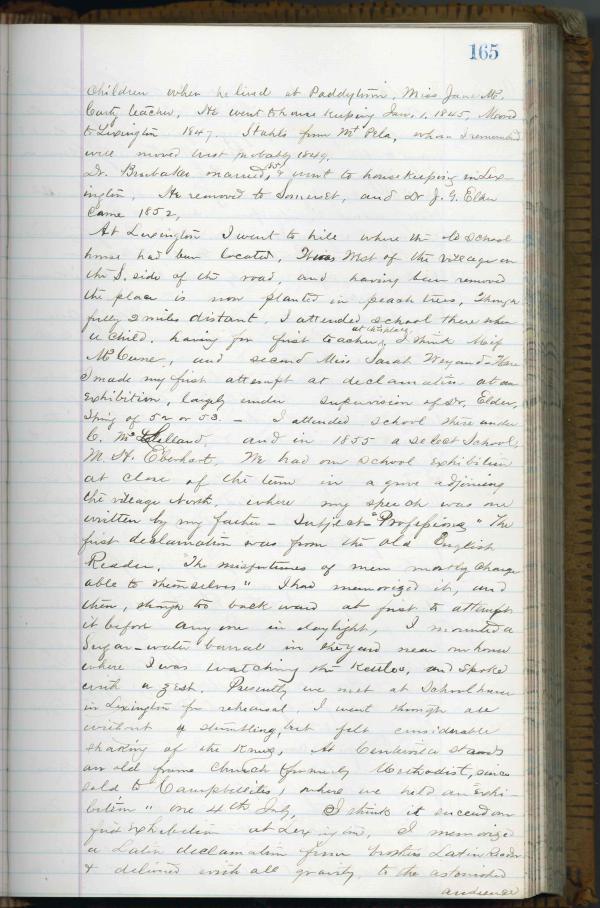 165
Children when he lived at Paddytown, Miss Jane Mc
Carty teacher. He went to house keeping Jan. 1, 1845, Moved
to Lexington 1847. Stahls from Mt Pela, whom I remember
well moved west probably 1849.
Dr. Brubaker married, & went to housekeeping in Lex-
ington. He removed to Somerset, and Dr J. G. Elder
came 1852,
At Lexington I went to hill where the old school
house had been located, It was West of the village on
the S. side of the road, and having been removed
the place is now planted in peach trees, Though
fully 2 miles distant, I attended school there when
a child, having for first teacher, at this place, I think Miss
McCune, and second Miss Sarah Weyand - Here
I made my first attempt at declamation at an
exhibition, largely under supervision of Dr. Elder,
Spring of 52 or 53. - I attended school there under
C. McLelland, and in 1855 a select School,
M. H. Eberhart. We had our school exhibition
at close of the term in a grove adjoining
the village North, where my speech was one
written by my father - subject - "Professions" The
first declamation was from the old English
Reader, "The misfortunes of men mostly charge
able to themselves" I had memorized it, and
then, though too backward at first to attempt
it before any one in daylight, I mounted a
Sugar-water barrel in the yard near our house
where I was watching the Kettles, and spoke
with a zest. Presently we met at Schoolhouse
in Lexington for rehearsal. I went through all
without a stumbling, but felt considerable
shaking of the knees, At Centerville stands
an old frame church (formerly Methodist, since
sold to Campbellites, where we held an "exhi-
bition" one 4th July, I think it succeed our
first exhibition at Lexington, I memorized
a Latin declamation from brother's Latin Reader
& delivered with all gravity to the astonished
audience